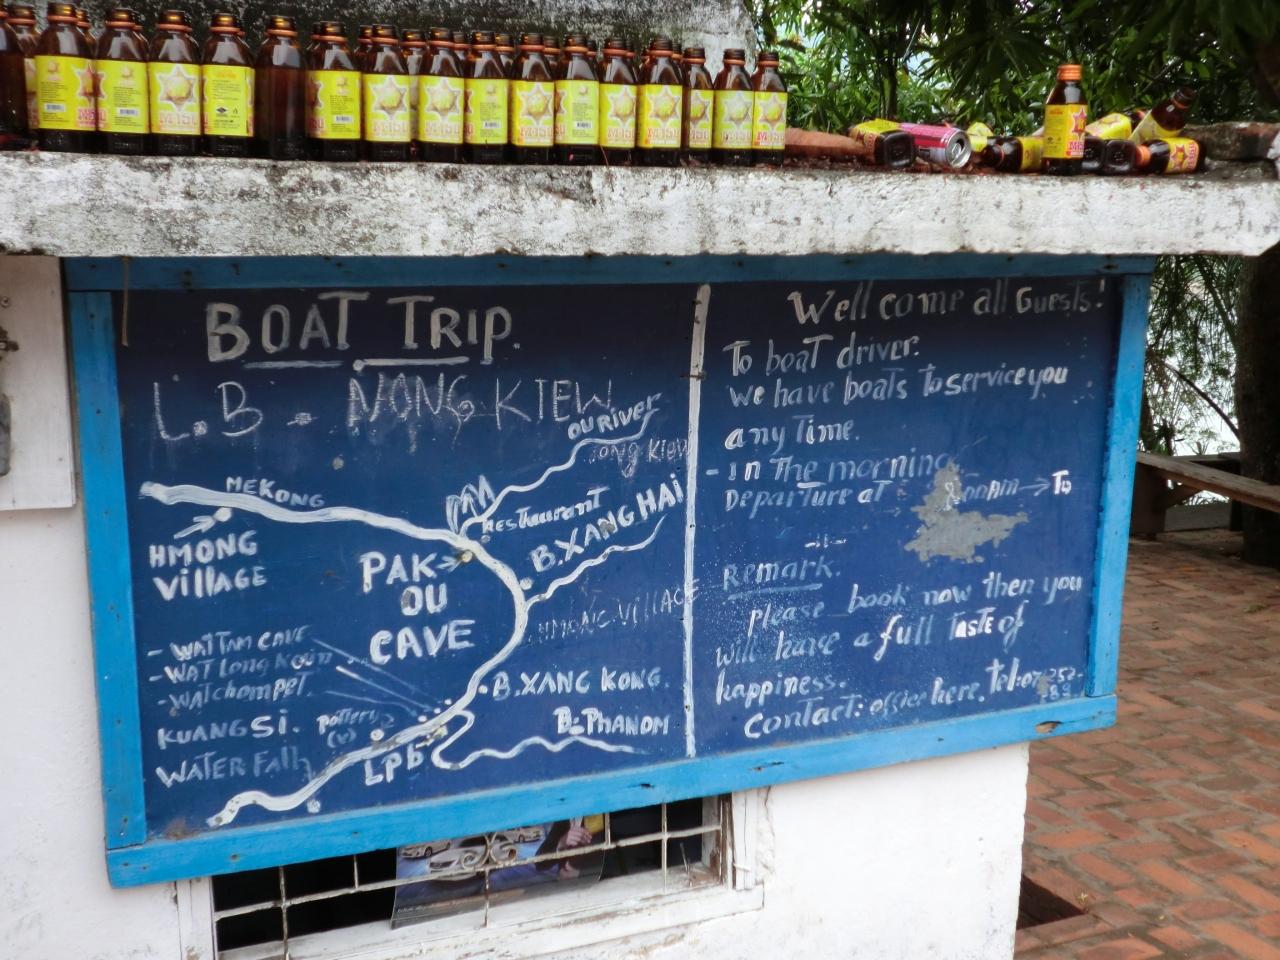 M-150
BOAT TRIP.
L.B - NONG KIEW
OU RIVER
MEKONG
Restaurant
B.XANG HAI
HMONG
Village
PAK
OU
CAVE
HMONG VILLAGE
- WAT TAM CAVE
- WAT Long Koun
- Wat chompet.
B. XANG KONG.
KUANG Si.
WATER Fall
pottery
(v)
B-PHANOM
Lpb
Well come all Guests!
To boat driver.
We have boats to service you
any Time.
- in The morning
Departure at
Remark.
please book now then you
will have a full taste of
happiness.
Contact: officer here.